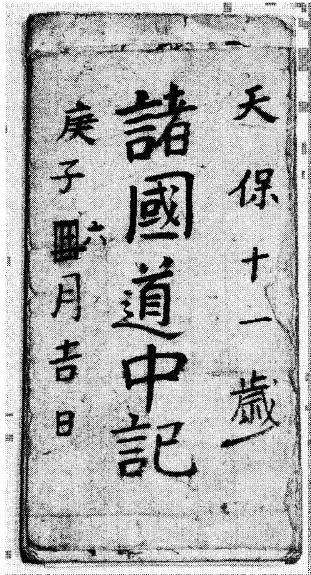 天保十一歳
諸國道中記
庚子六月吉日